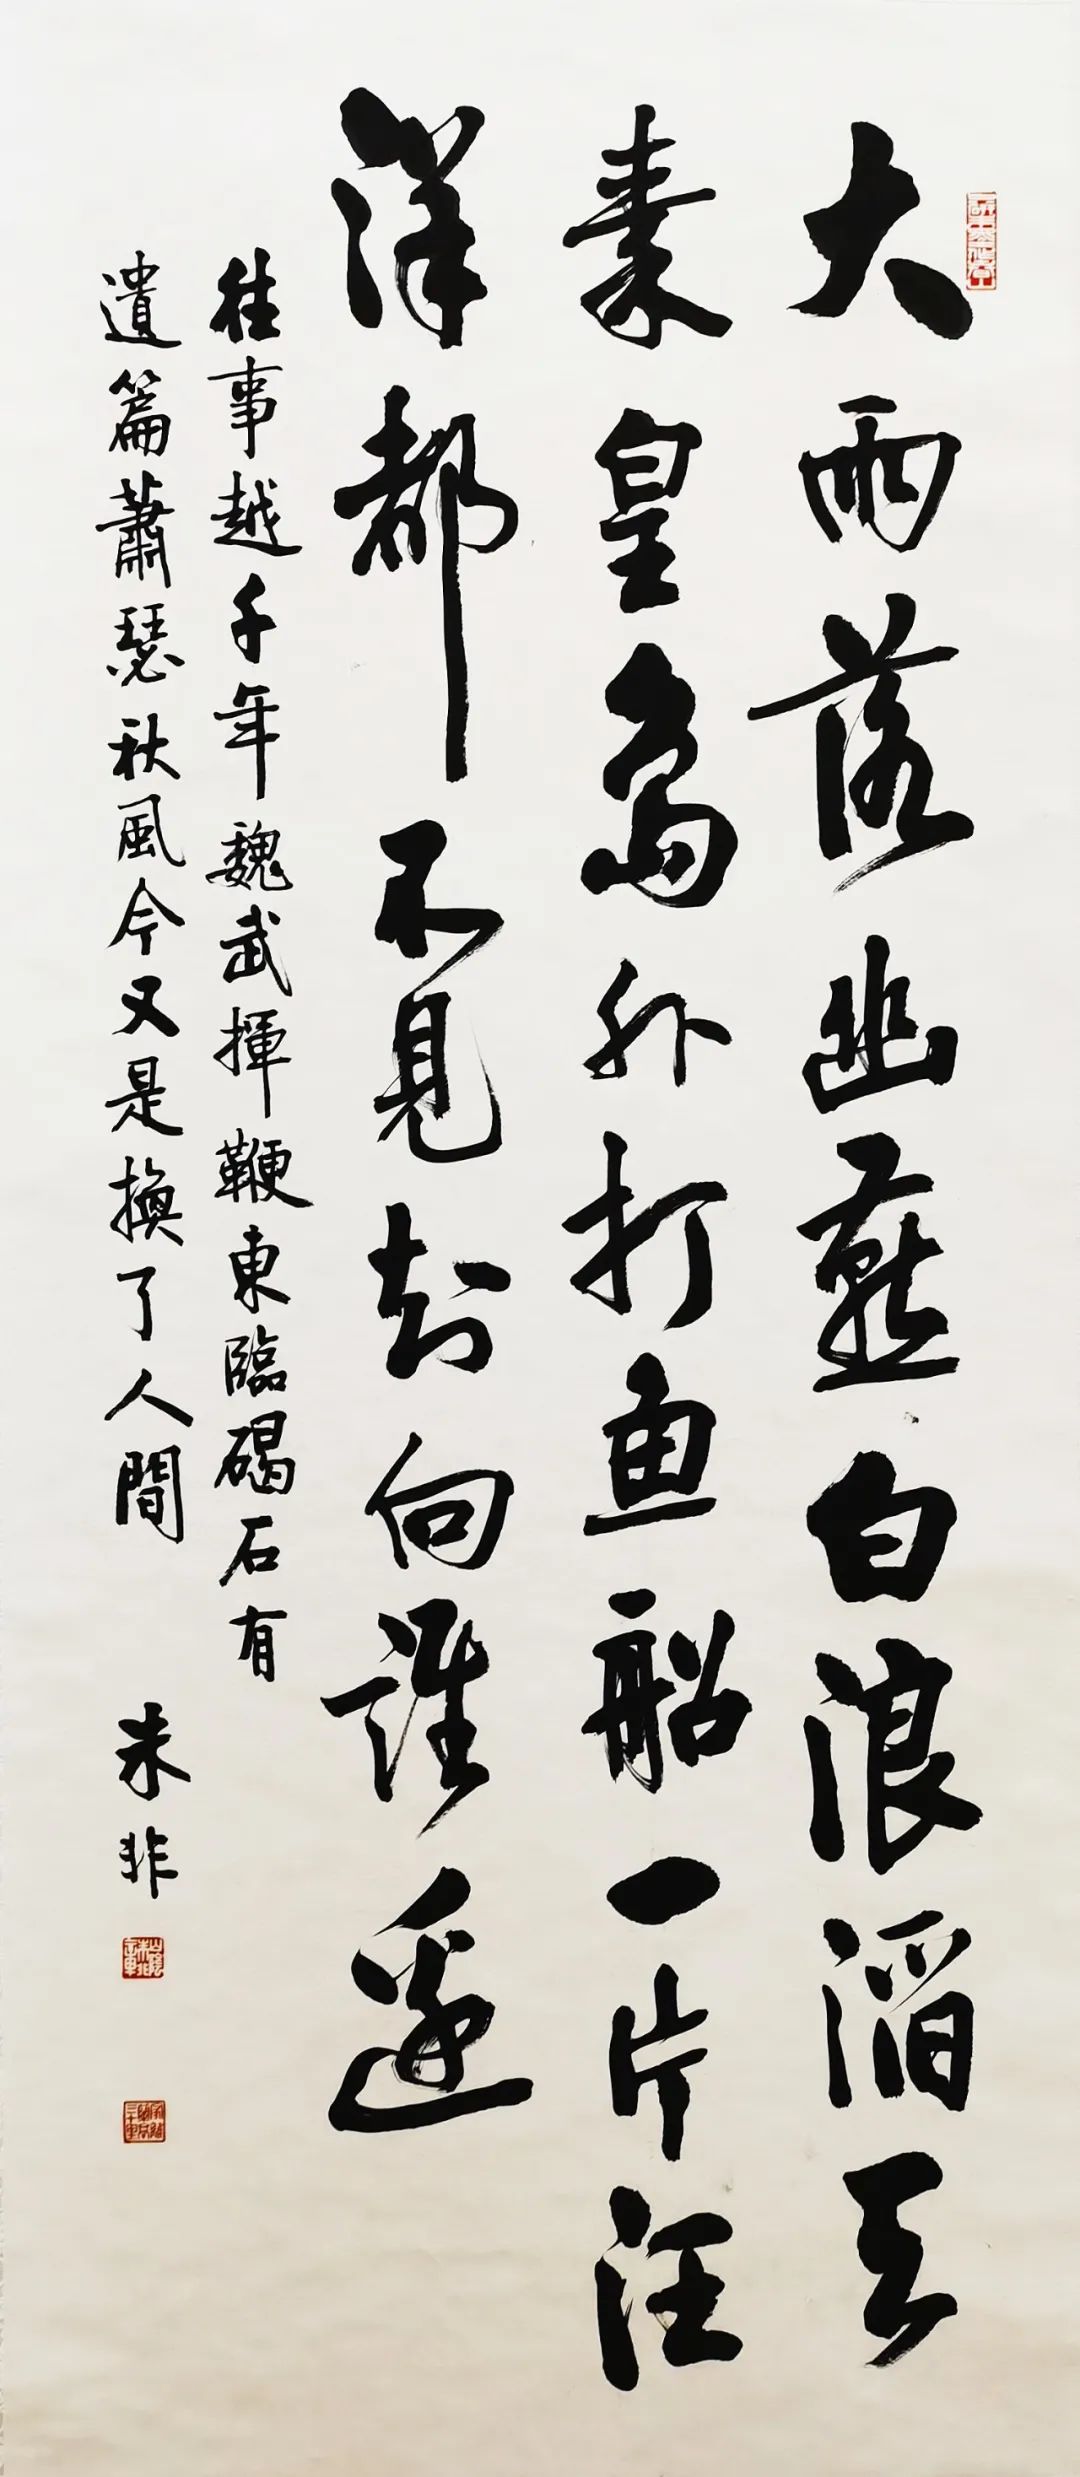 大雨落幽燕白浪滔天
秦皇島外打鱼船一片汪
洋都不見知向誰邊
往事越千年魏武揮鞭東臨碣石有
遺篇蕭瑟秋風今又是換了人間
朱非